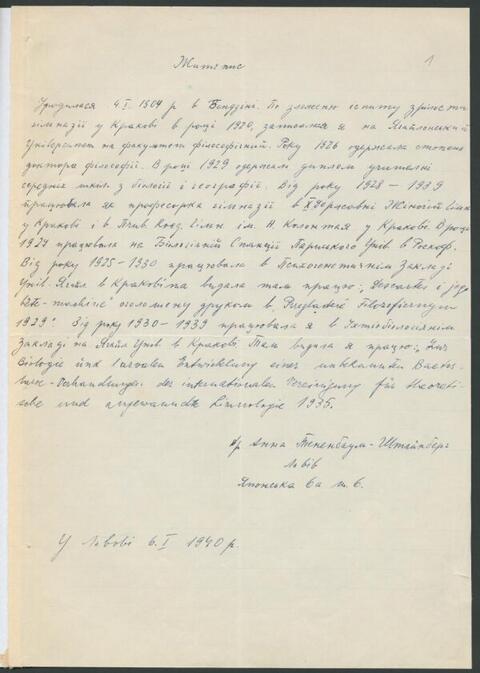 1
Житєпис
Уродилася 4.I. 1904 р. в Бендзіні. По зложеню іспиту зрілости
гімназії у Кракові в році 1920, записалася я на Ягайлонський
Університет на факультет філософічний. Року 1926 одержала степень
доктора філософії. В році 1929 одержала диплом учительки
середних шкіл з біології і географії. Від року 1928 – 1939
працювала як професорка гімназії в X Державній Жіночій Гімн.
у Кракові і в Прив. Коод. Гімн. ім. Н. Колонтая у Кракові. В році
1924 працювала на Біологічній Станції Паризького Унів. в Роскоф.
Від року 1925–1930 працювала в Психогенетичнім Закладі
Унів. Ягайл. в Кракові та видала там працю „Descartes i jego
оголошену друком в "Przeglądzie Filozoficznym
1929". Від року 1930 – 1939 працювала я в
Закладі на Ягайл. Унів. в Кракові. Там видала я працю: „Zur
Biologie und Larvalen Entwicklung einer unbekannten
Verhandlungen der internationalen Vereinigung für theoreti-
sche und angewandte Limnologie 1935.
др Анна Тененбаум-Штайнберг
Львів
Японська 6а м. 6.
У Львові 6.I 1940 р.